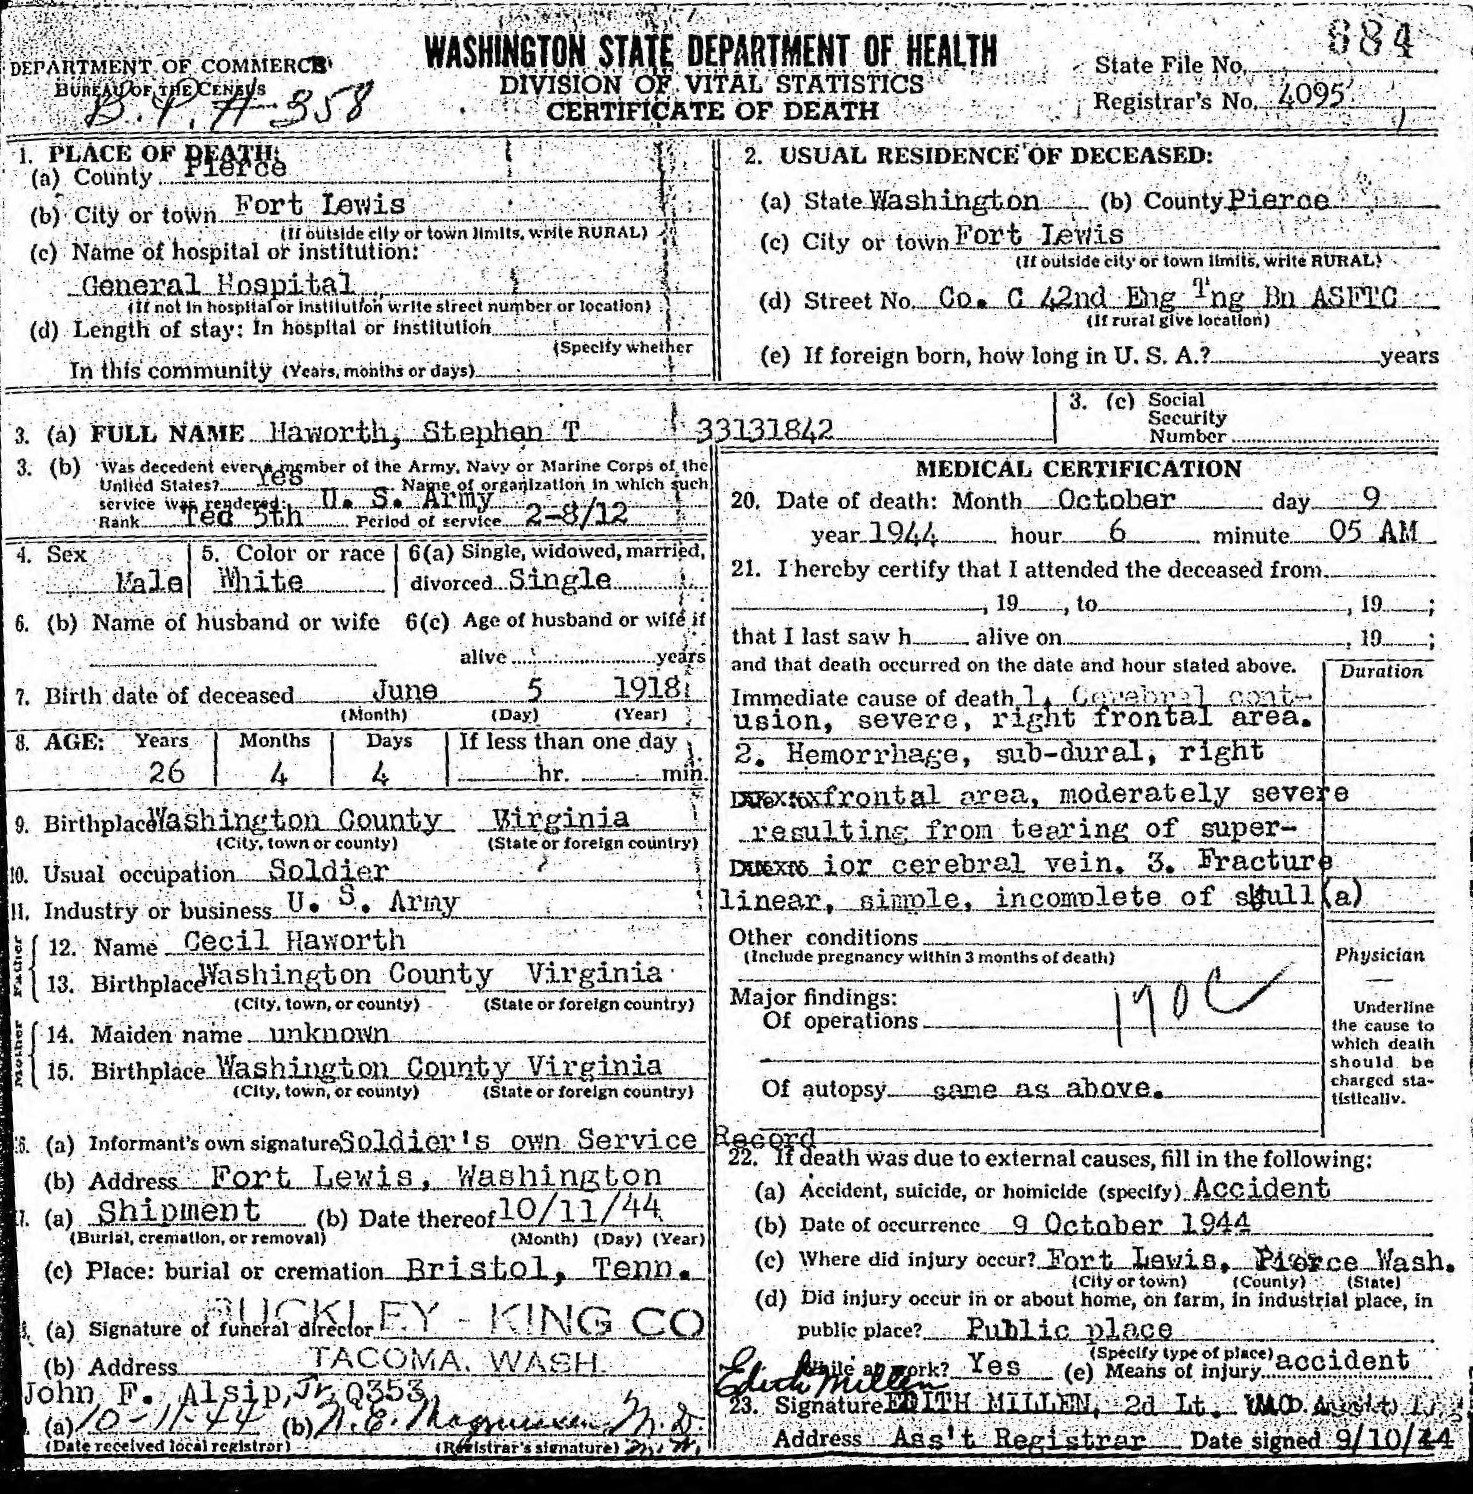 884
WASHINGTON STATE DEPARTMENT OF HEALTH
DEPARTMENT OF COMMERCE
BUREAU OF THE CENSUS
DIVISION OF VITAL STATISTICS
CERTIFICATE OF DEATH
State File No.
B.P.H-358
Registrar's No. 4095
1. PLACE OF DEATH:
(a) County Pierce
(b) City or town Fort Lewis
(If outside city or town limits, write RURAL)
(c) Name of hospital or institution:
General Hospital
(If not in hospital or institution write street number or location)
(d) Length of stay: In hospital or institution
(Specify whether
In this community (Years, months or days)
2. USUAL RESIDENCE OF DECEASED:
(a) State Washington (b) County Pierce
(c) City or town Fort Lewis
(If outside city or town limits, write RURAL)
(d) Street No. Co. C 42nd Eng Tng Bn ASFTC
(If rural give location)
(e) If foreign born, how long in U. S. A.? years
3. (a) FULL NAME Haworth, Stephen T 33131842
3. (c) Social
Security
Number
3. (b) Was decedent ever a member of the Army, Navy or Marine Corps of the
United States? Yes Name of organization in which such
service was rendered: U. S. Army
Rank Tec 5th Period of service 2-8/12
4. Sex Male
5. Color or race White
6(a) Single, widowed, married,
divorced Single
6. (b) Name of husband or wife 6(c) Age of husband or wife if
alive years
7. Birth date of deceased June 5 1918
(Month) (Day) (Year)
8. AGE: Years Months Days If less than one day
26 4 4 hr. min.
9. Birthplace Washington County Virginia
(City, town or county) (State or foreign country)
10. Usual occupation Soldier
11. Industry or business U. S. Army
Father
12. Name Cecil Haworth
13. Birthplace Washington County Virginia
(City, town, or county) (State or foreign country)
Mother
14. Maiden name unknown
15. Birthplace Washington County Virginia
(City, town, or county) (State or foreign country)
16. (a) Informant's own signature Soldier's own Service Record
(b) Address Fort Lewis, Washington
(a) Shipment (b) Date thereof 10/11/44
(Burial, cremation, or removal) (Month) (Day) (Year)
(c) Place: burial or cremation Bristol, Tenn.
BUCKLEY - KING CO
(a) Signature of funeral director
(b) Address TACOMA, WASH.
John F. Alsip, Jr. 0353
(a) 10-11-44 (b) M.D.
(Date received local registrar) (Registrar's signature)
MEDICAL CERTIFICATION
20. Date of death: Month October day 9
year 1944 hour 6 minute 05 AM
21. I hereby certify that I attended the deceased from
, 19 , to , 19 ;
that I last saw h alive on , 19 ;
and that death occurred on the date and hour stated above.
Duration
Immediate cause of death 1. Cerebral cont-
usion, severe, right frontal area.
2. Hemorrhage, sub-dural, right
Due to frontal area, moderately severe
resulting from tearing of super-
Due to ior cerebral vein. 3. Fracture
linear, simple, incomplete of skull (a)
Other conditions
(Include pregnancy within 3 months of death)
Major findings:
Of operations
190C
Of autopsy same as above.
Physician
Underline
the cause to
which death
should be
charged sta-
tistically.
22. If death was due to external causes, fill in the following:
(a) Accident, suicide, or homicide (specify) Accident
(b) Date of occurrence 9 October 1944
(c) Where did injury occur? Fort Lewis, Pierce Wash.
(City or town) (County) (State)
(d) Did injury occur in or about home, on farm, in industrial place, in
public place? Public place
(Specify type of place)
While at work? Yes (e) Means of injury accident
Edith Millen
23. Signature EDITH MILLEN, 2d Lt.
Address Ass't Registrar Date signed 9/10/44